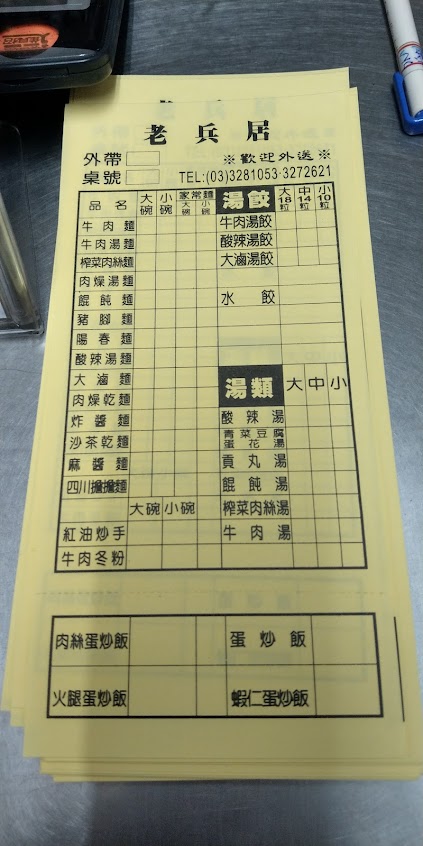 老兵居
外帶
※歡迎外送※
桌號
TEL:(03)3281053·3272621
品名 大碗 小碗 家常麵 大碗 小碗
牛肉麵
牛肉湯麵
榨菜肉絲麵
肉燥湯麵
餛飩麵
豬腳麵
陽春麵
酸辣湯麵
大滷麵
肉燥乾麵
炸醬麵
沙茶乾麵
麻醬麵
四川擔擔麵
大碗 小碗
紅油炒手
牛肉冬粉
湯餃 大18粒 中14粒 小10粒
牛肉湯餃
酸辣湯餃
大滷湯餃
水餃
湯類 大 中 小
酸辣湯
青菜豆腐
蛋花湯
貢丸湯
餛飩湯
榨菜肉絲湯
牛肉湯
肉絲蛋炒飯 蛋炒飯
火腿蛋炒飯 蝦仁蛋炒飯